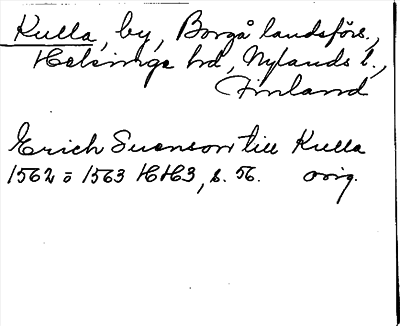 Kulla, by, Borgå landsförs.,
Helsinge hd, Nylands l.,
Finland
Erich Suenson till Kulla
1562 o 1563 HH3, s. 56. orig.